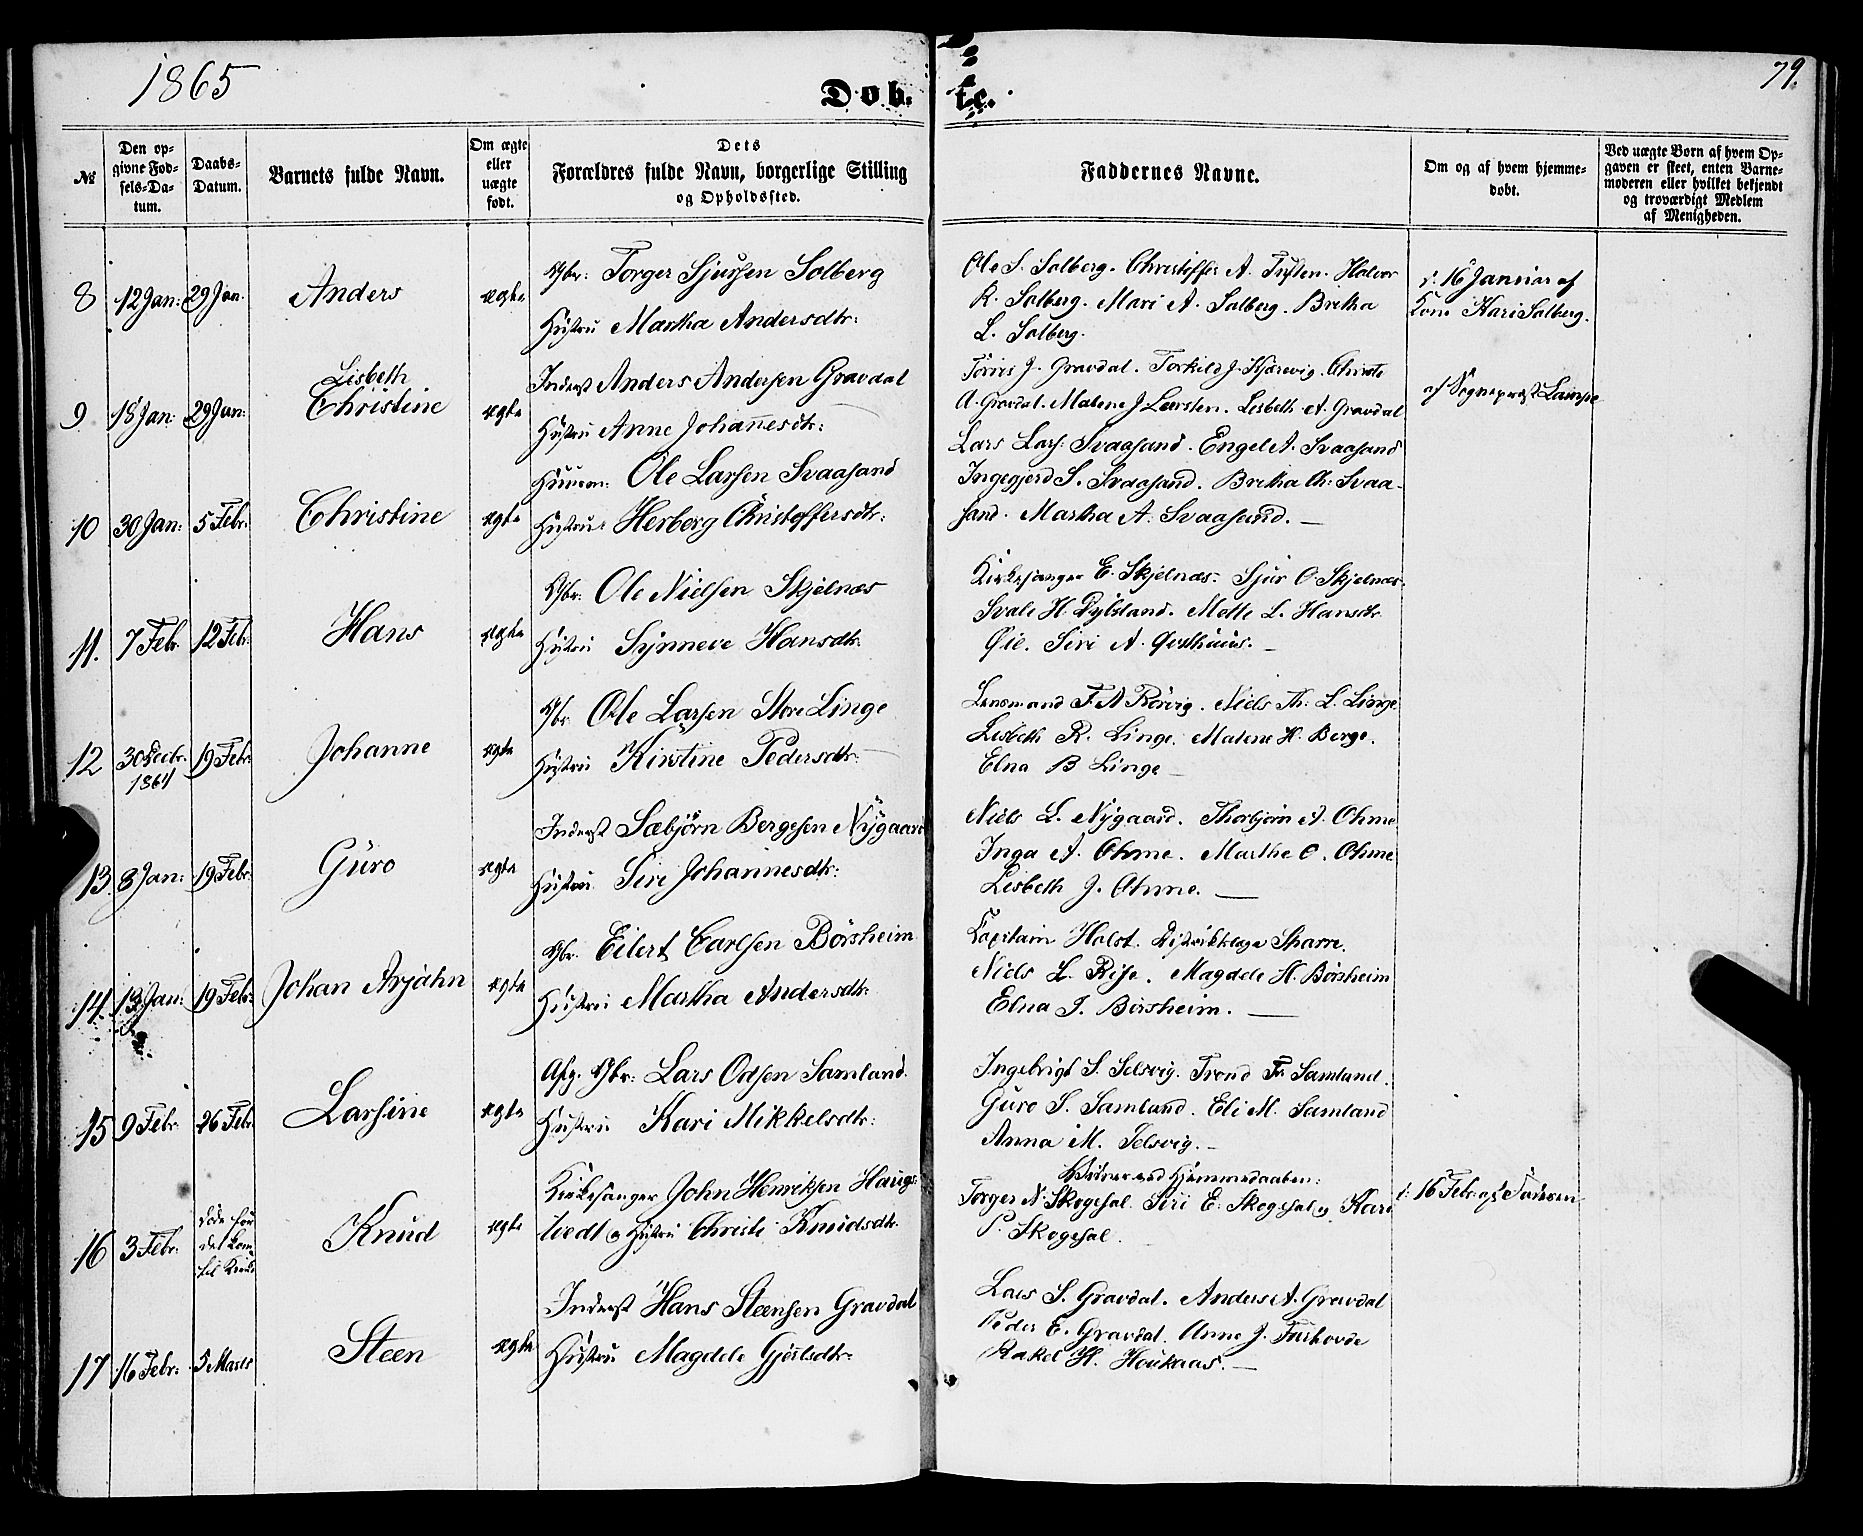 1865
Døb. te.
79.
№
Den opgivne Fødsels-Datum.
Daabs-Datum.
Barnets fulde Navn.
Om ægte eller uægte født.
Dets Forældres fulde Navn, borgerlige Stilling og Opholdssted.
Faddernes Navne.
Om og af hvem hjemmedøbt.
Ved uægte Børn af hvem Opgaven er skeet, enten Barnemoderen eller hvilket bekjendt og troværdigt Medlem af Menigheden.
8 12 Jan: 29 Jan. Anders ægte
Gbr: Torger Sjursen Solberg
Hustru Martha Andersdtr:
Ole S. Solberg. Christoffer A. Halvor
R. Solberg. Mari A. Solberg. Bretha
L. Solberg.
d: 16 Januar af
Kone Kari Solberg.
9 18 Jan: 29 Jan: Lisbeth
Christine ægte
Inderst Anders Andersen Gravdal
Hustru Anne Johannesdtr:
J. Gravdal. Torkild J. Kjærevig. Christi
A. Gravdal. Malene J. Lisbeth A. Gravdal
af Sogneprest Lampe
10 30 Jan: 5 Febr. Christine ægte
Huusm: Ole Larsen Svaasand
Hustrue Herborg Christoffersdtr:
Lars Lars: Svaasand. Engel A. Svaasand
Ingegjerd S. Svaasand. Bretha Ch: Svaa-
sand. Martha A. Svaasand. —
11. 7 Feb. 12 Feb. Hans ægte
Gbr: Ole Nielsen Skjelnæs
Hustru Synneve Hansdtr.
Kirkesanger E. Skjelnæs. Sjur O. Skjelnæs.
Svale H. Mette L. Hansdtr
Øie. Siri A. —
12 30 Decbr. 1864 19 Febr. Johanne ægte
Gbr. Ole Larsen Store Linge
Hustru Kirstine Pedersdtr:
Lensmand F. A. Rørvig. Niels Th: L. Linge
Lisbeth R. Linge. Malene H. Berge.
Elna B Linge —
13. 8 Jan: 19 Febr. Guro ægte
Inderst Sæbjørn Bergesen Nygaard
Hustru Siri Johannesdtr:
Niels L. Nygaard. Thorbjørn A. Ohme
Inga A. Ohme. Marthe O. Ohme
Lisbeth J. Ohme. —
14. 13 Jan: 19 Febr. Johan Arjahn ægte
Gbr. Eilert Carlsen Børsheim
Hustru Martha Andersdtr.
Kapitain Holst. Distriktslæge
Niels L. Rise. Magdele H. Børsheim
Elna J. Børsheim. —
15 9 Febr. 26 Febr. Larsine ægte
Afg. Gbr: Lars Odsen Samland.
Hustru Kari Mikkelsdtr:
Ingebrigt S. Selsvig. Trond Samland.
Guro S. Samland. Eli M. Samland
Anna M. Selsvig. —
16 3 Febr: døde før det kom til Kirke Knud ægte
Kirkesanger John Henriksen Haugs:
tvedt og Hustru Christi Knudsdtr.
Vidner ved Hjemmedaaben:
Torger N. Skogesal. Siri E. Skogesal og Kari
P. Skogesal.
d: 16 Febr. af Faderen
17 16 Febr: 5 Marts Steen ægte
Inderst Hans Steensen Gravdal
Hustru Magdele Gjertsdtr:
Lars S. Gravdal. Anders A. Gravdal
Peder E. Gravdal. Anne J.
Rakel H. —